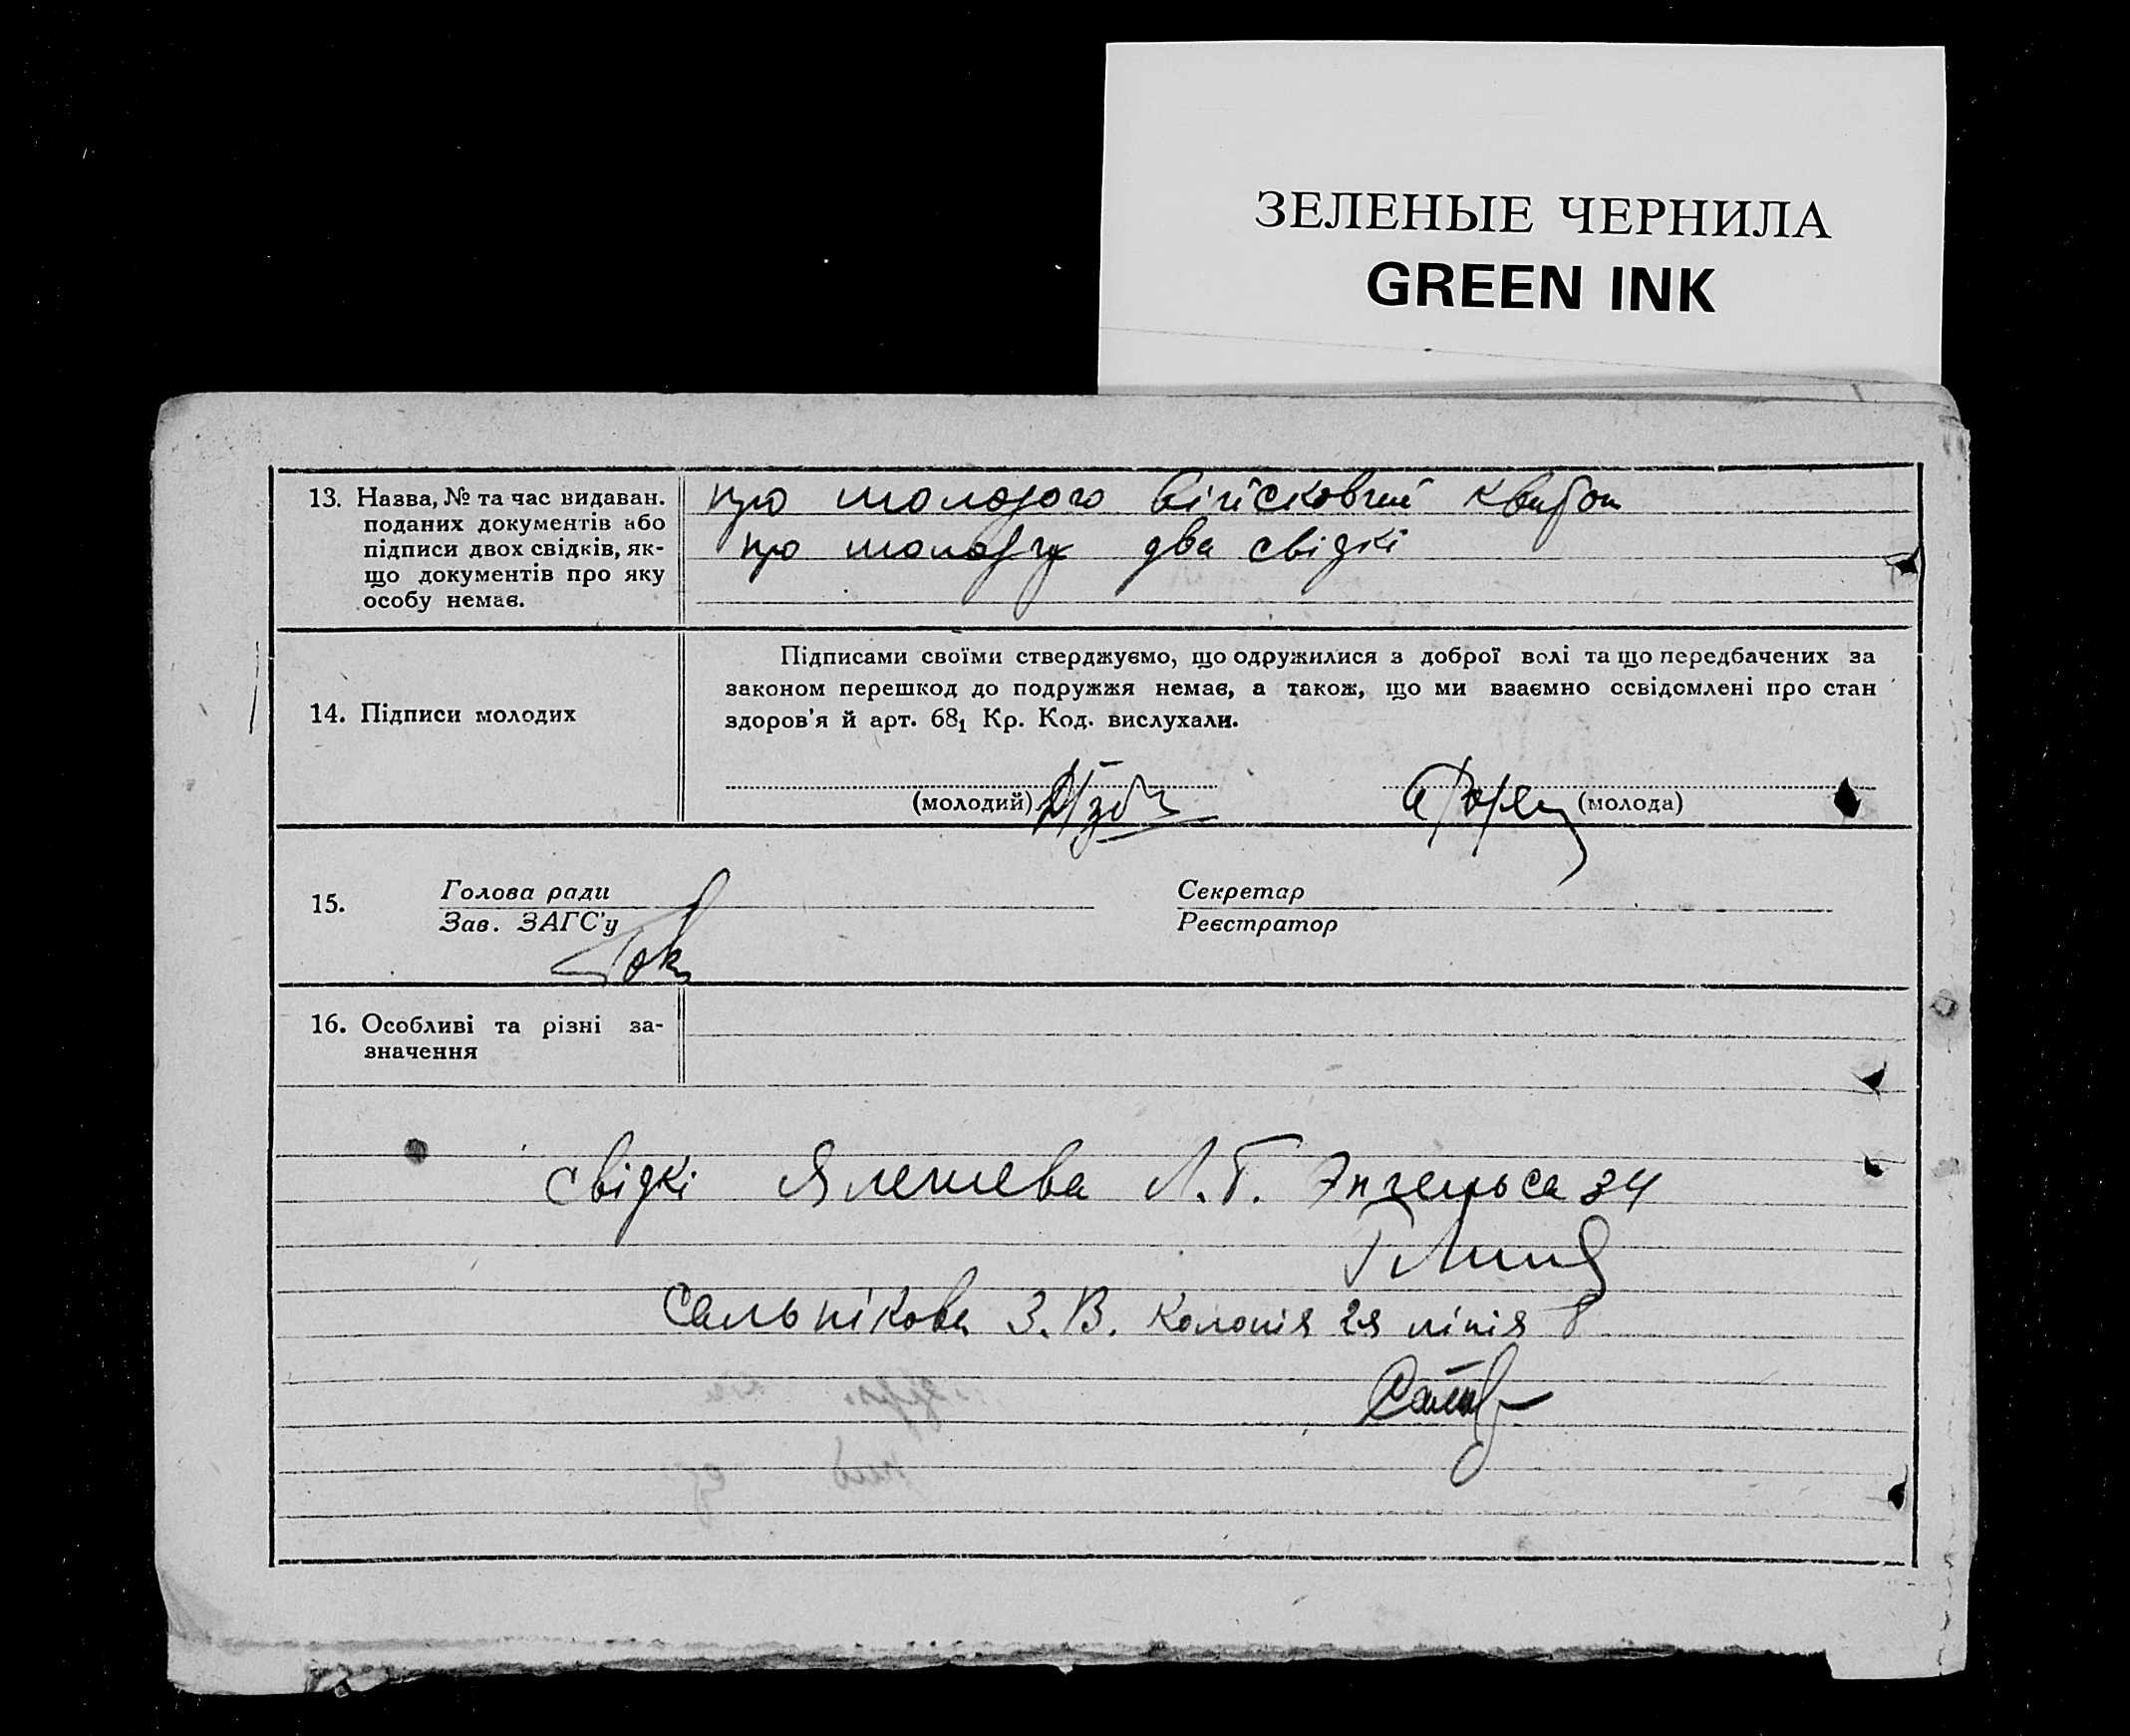 ЗЕЛЕНЫЕ ЧЕРНИЛА
GREEN INK
13. Назва, № та час видаван.
поданих документів або
підписи двох свідків, як-
що документів про яку
особу немає.
про молодого військовий квиток
про молоду два свідкі
14. Підписи молодих
Підписами своїми стверджуємо, що одружилися з доброї волі та що передбачених за
законом перешкод до подружжя немає, а також, що ми взаємно освідомлені про стан
здоров'я й арт. 68₁ Кр. Код. вислухали.
(молодий)
(молода)
15.
Голова ради
Зав. ЗАГС'у
Секретар
Реєстратор
16. Особливі та різні за-
значення
свідкі Л.Г. Энгельса 34
Сальнікова З.В. Колонія 2я лінія 8